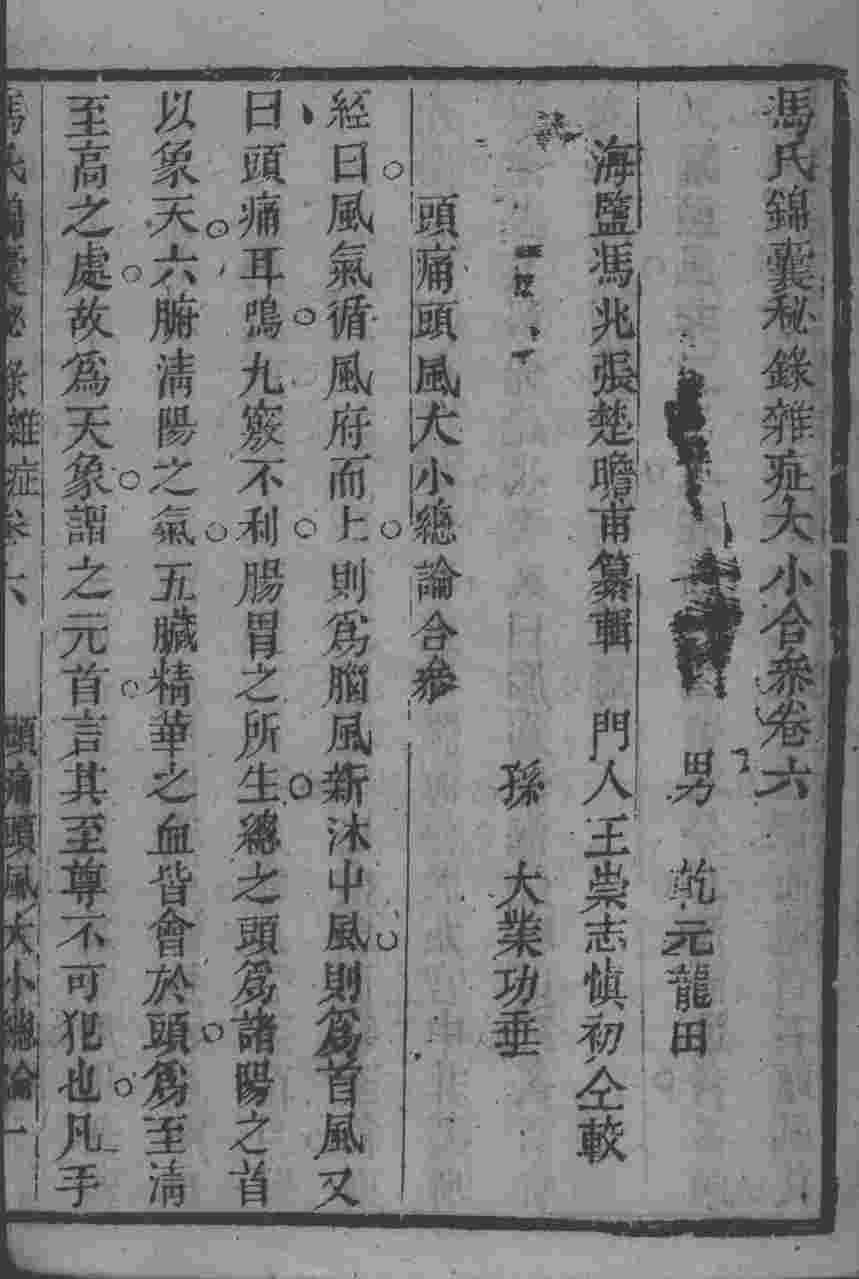 馮氏錦囊秘錄雜症大小合叅卷六
男 乾元龍田
海鹽馮兆張楚瞻甫纂輯 門人王崇志慎初仝較
孫 大業功垂
頭痛頭風大小總論合叅
經曰風氣循風府而上則爲腦風新沐中風則爲首風又
曰頭痛耳鳴九竅不利腸胃之所生總之頭爲諸陽之首
以象天六腑淸陽之氣五臟精華之血皆會於頭爲至淸
至高之處故爲天象謂之元首言其至尊不可犯也凡手
馮氏錦囊秘錄雜症卷六 頭痛頭風大小總論一